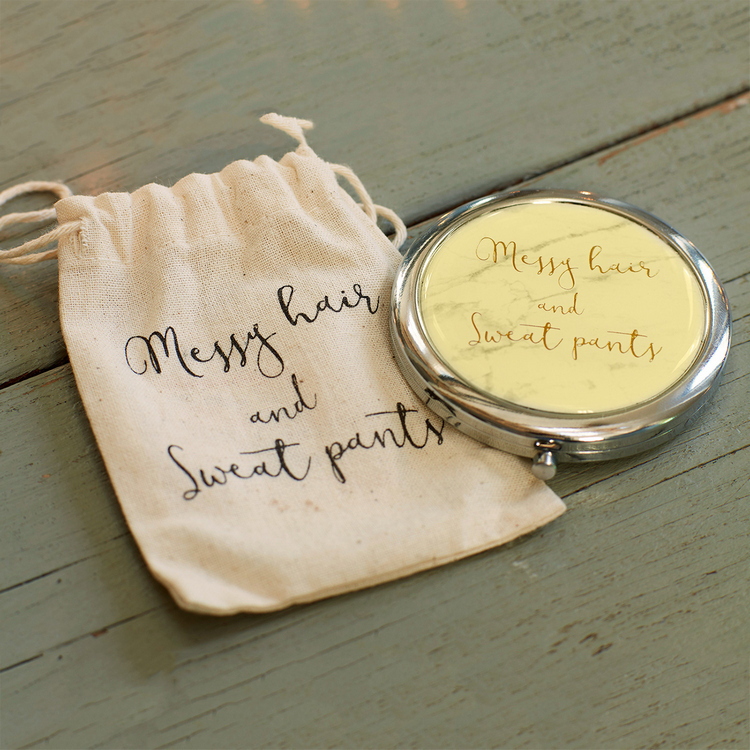 Messy hair
and
Sweat pants
Messy hair
and
Sweat pants